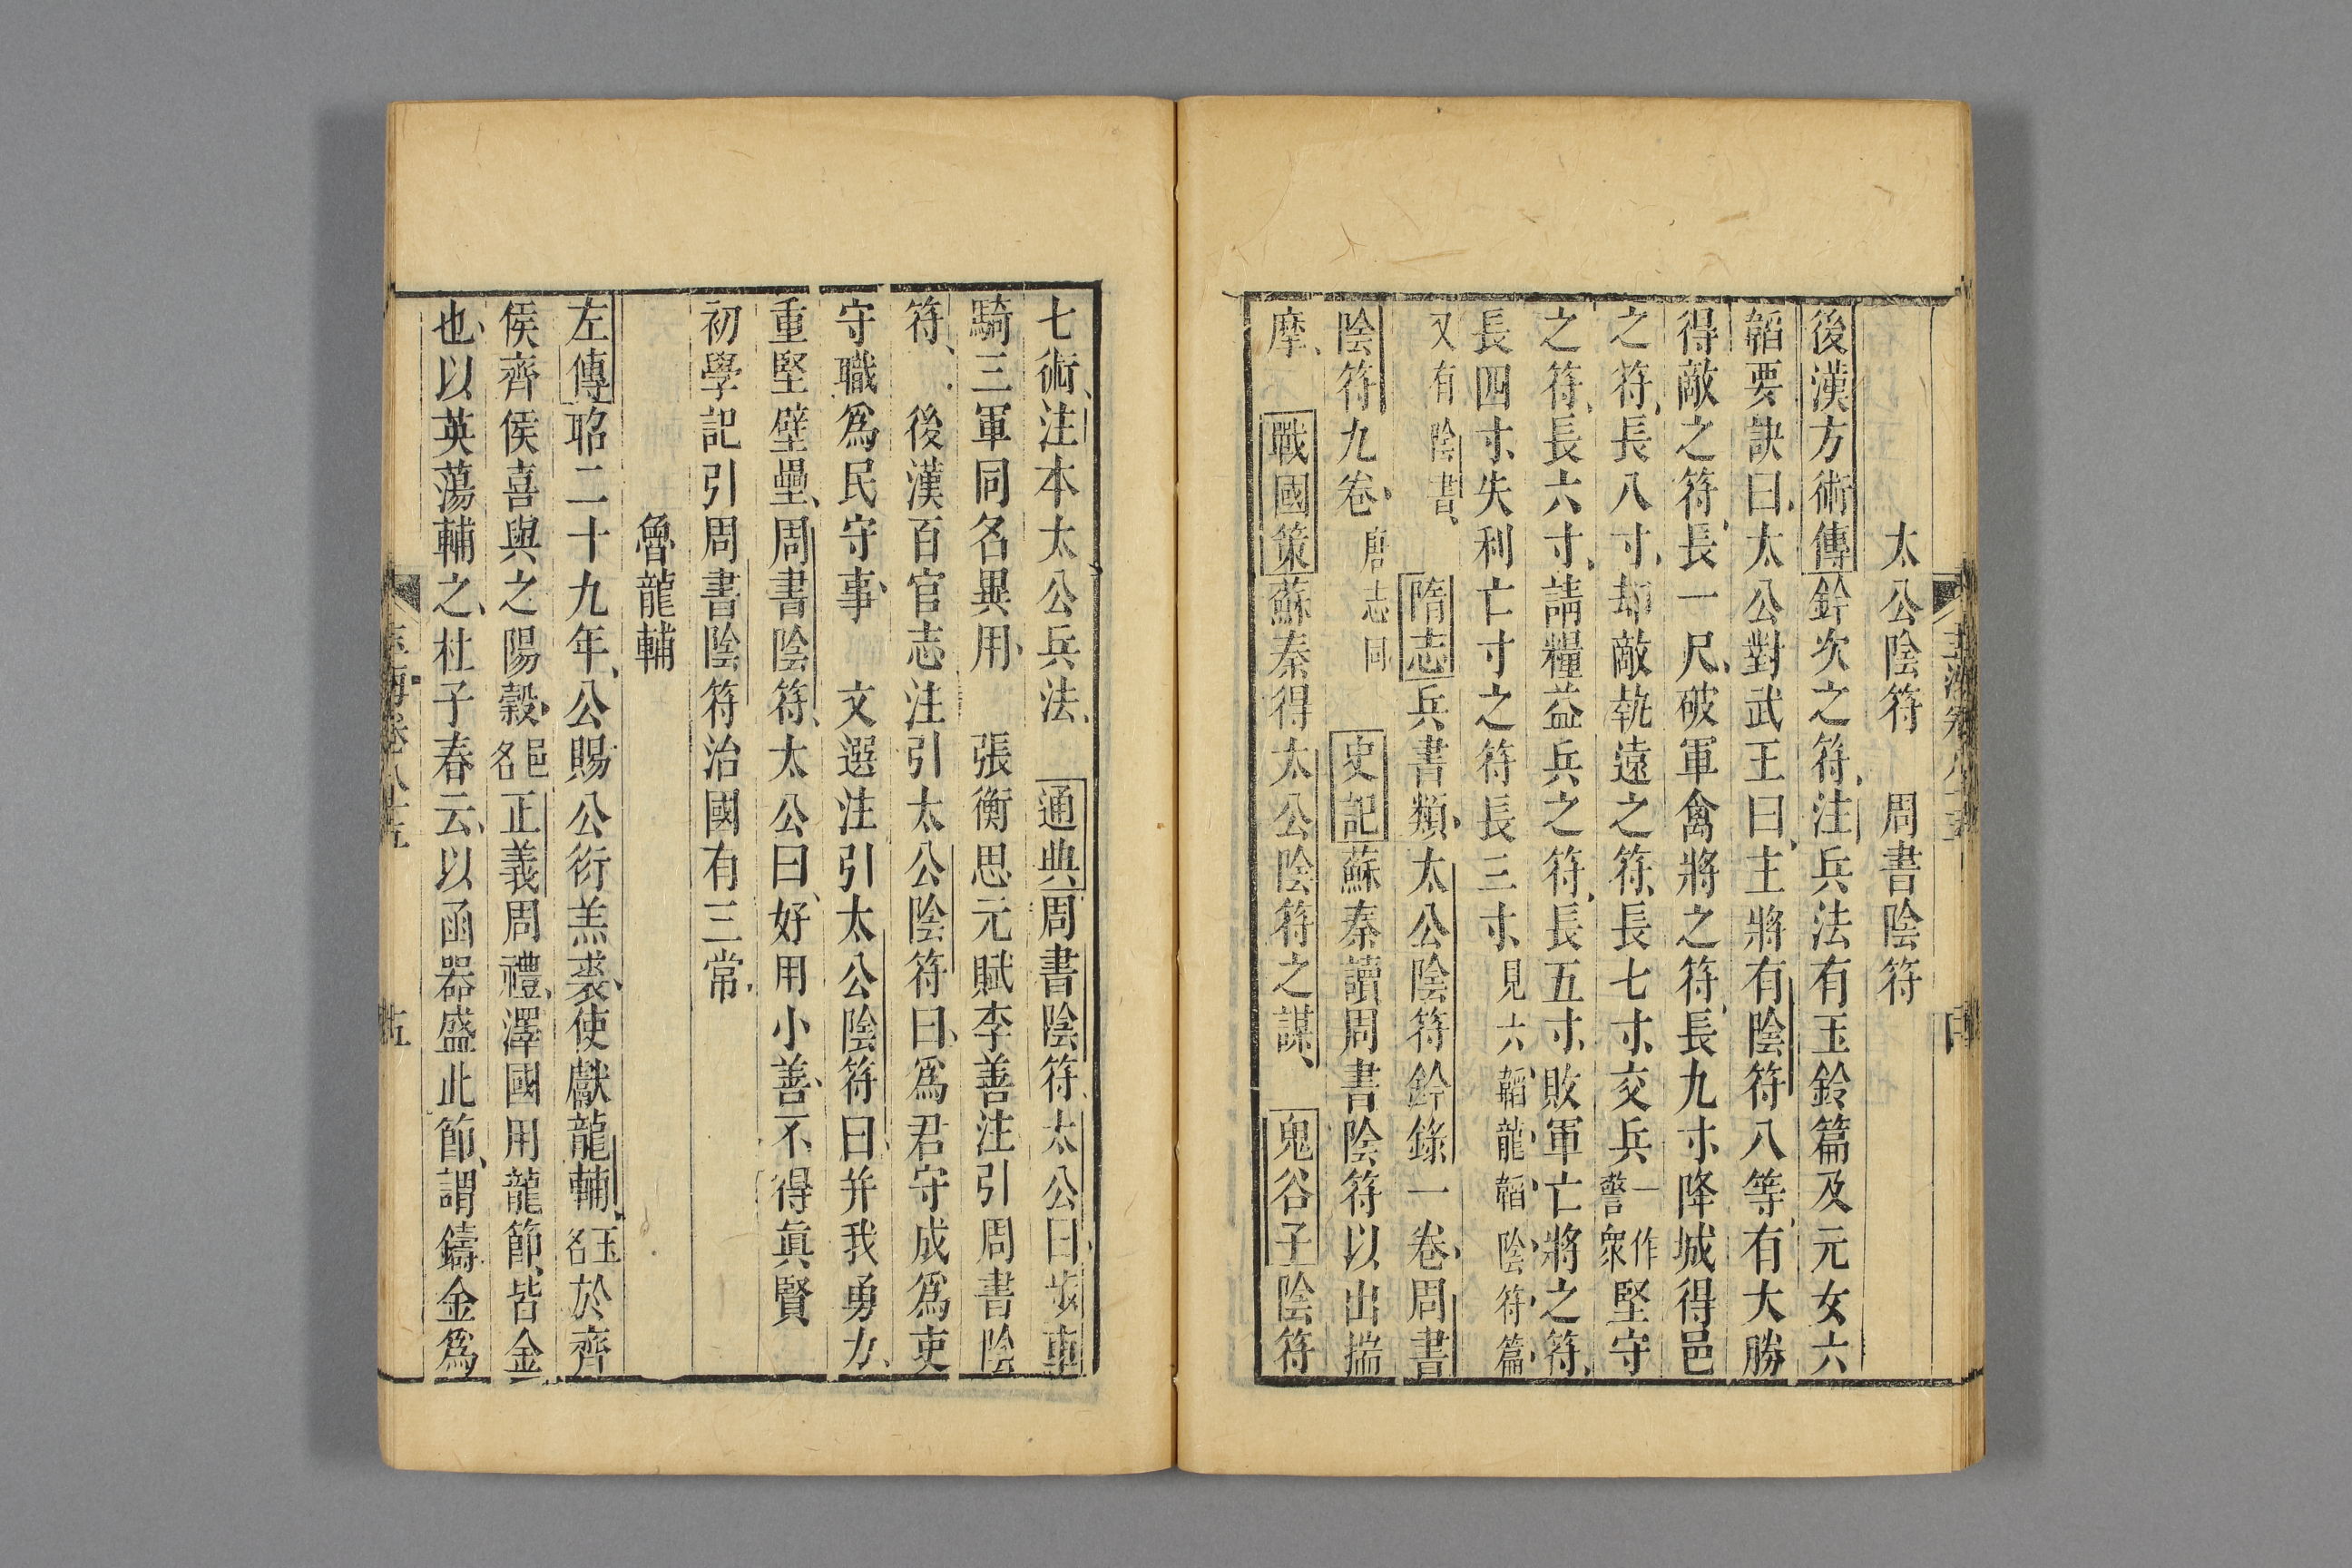 太公陰符　周書陰符
後漢方術傳鈐次之符注兵法有玉鈐篇及元女六
韜要訣曰太公對武王曰主將有陰符八等有大勝
得敵之符長一尺破軍禽將之符長九寸降城得邑
之符長八寸却敵執遠之符長七寸交兵一作警衆堅守
之符長六寸請糧益兵之符長五寸敗軍亡將之符
長四寸失利亡寸之符長三寸見六韜龍韜陰符篇
又有陰書　隋志兵書類太公陰符鈐錄一卷周書
陰符九卷唐志同　史記蘇秦讀周書陰符以出揣
摩　戰國策蘇秦得太公陰符之謀　鬼谷子陰符
七術注本太公兵法　通典周書陰符太公曰步車
騎三軍同名異用　張衡思元賦李善注引周書陰
符　後漢百官志注引太公陰符曰爲君守成爲吏
守職爲民守事　文選注引太公陰符曰并我勇力
重堅壁壘周書陰符太公曰好用小善不得眞賢
初學記引周書陰符治國有三常
魯龍輔
左傳昭二十九年公賜公衍羔裘使獻龍輔玉名於齊
侯齊侯喜與之陽穀邑名正義周禮澤國用龍節皆金
也以英蕩輔之杜子春云以函器盛此節謂鑄金爲